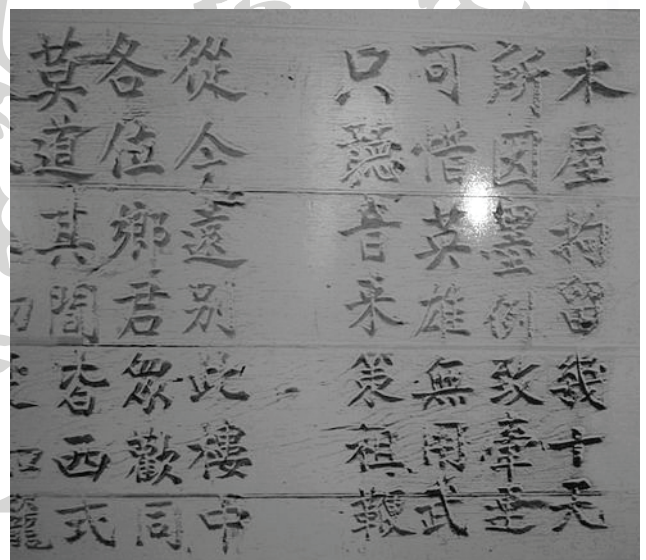 木屋拘留幾十天
所因墨例致牽連
可惜英雄無用武
只聽音来策祖鞭
從今遠別此樓中
各位鄉君眾歡同
莫道其間皆西式